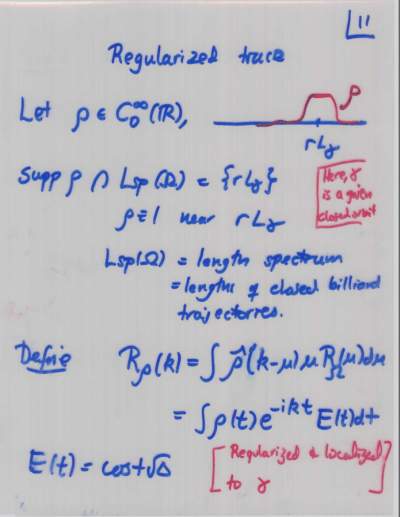 11
Regularized trace
Let ρ ∈ C₀^∞(ℝ),
ρ
rL_γ
Supp ρ ∩ Lsp(Ω) = {rL_γ}
ρ ≡ 1 near rL_γ
Here, γ
is a given
closed orbit
Lsp(Ω) = length spectrum
= lengths of closed billiard
trajectories.
Define R_ρ(k) = ∫ ρ̂(k-μ) μ R_Ω(μ) dμ
= ∫ρ(t) e^{-ikt} E(t) dt
E(t) = cos t√Δ
[Regularized & localized
to γ]